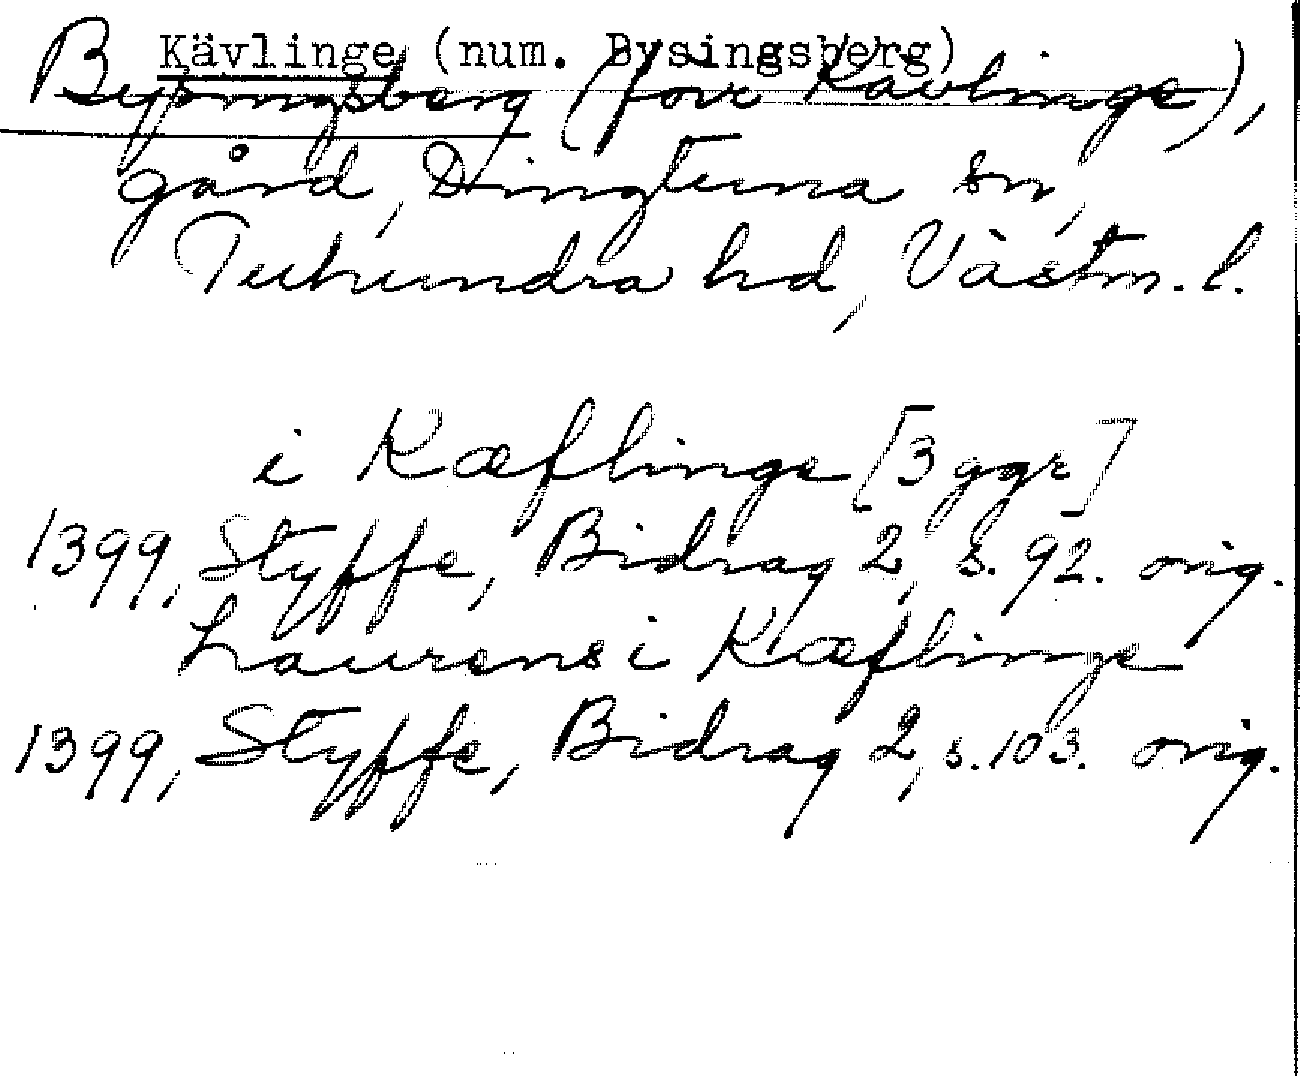 Kävlinge (num. Bysingsberg)
Bysingsberg (förr Kävlinge),
gård, Dingtuna sn,
Tuhundra hd, Västm. l.
i Kæflinge [3 ggr]
1399, Styffe, Bidrag 2, s. 92. orig.
Laurens i Kæflinge
1399, Styffe, Bidrag 2, s. 103. orig.